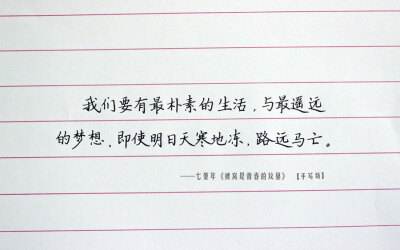 我们要有最朴素的生活,与最遥远
的梦想,即使明日天寒地冻,路远马亡。
——七堇年《被窝是青春的坟墓》 【手写菌】